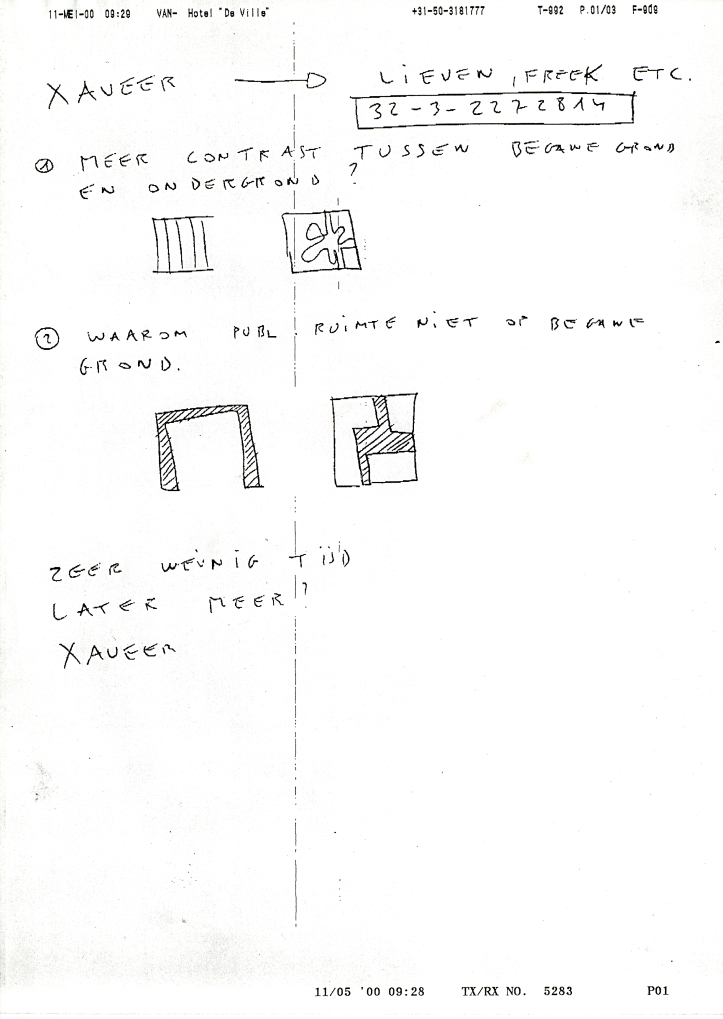 11-MEI-00 09:29 VAN- Hotel "De Ville" +31-50-3181777 T-992 P.01/03 F-909
XAVEER → LIEVEN, FREEK ETC.
32-3-2272814
① MEER CONTRAST TUSSEN BEGANE GROND
EN ONDERGROND ?
② WAAROM PUBL. RUIMTE NIET OP BEGANE
GROND.
ZEER WEINIG TIJD
LATER MEER ?
XAVEER
11/05 '00 09:28 TX/RX NO. 5283 P01